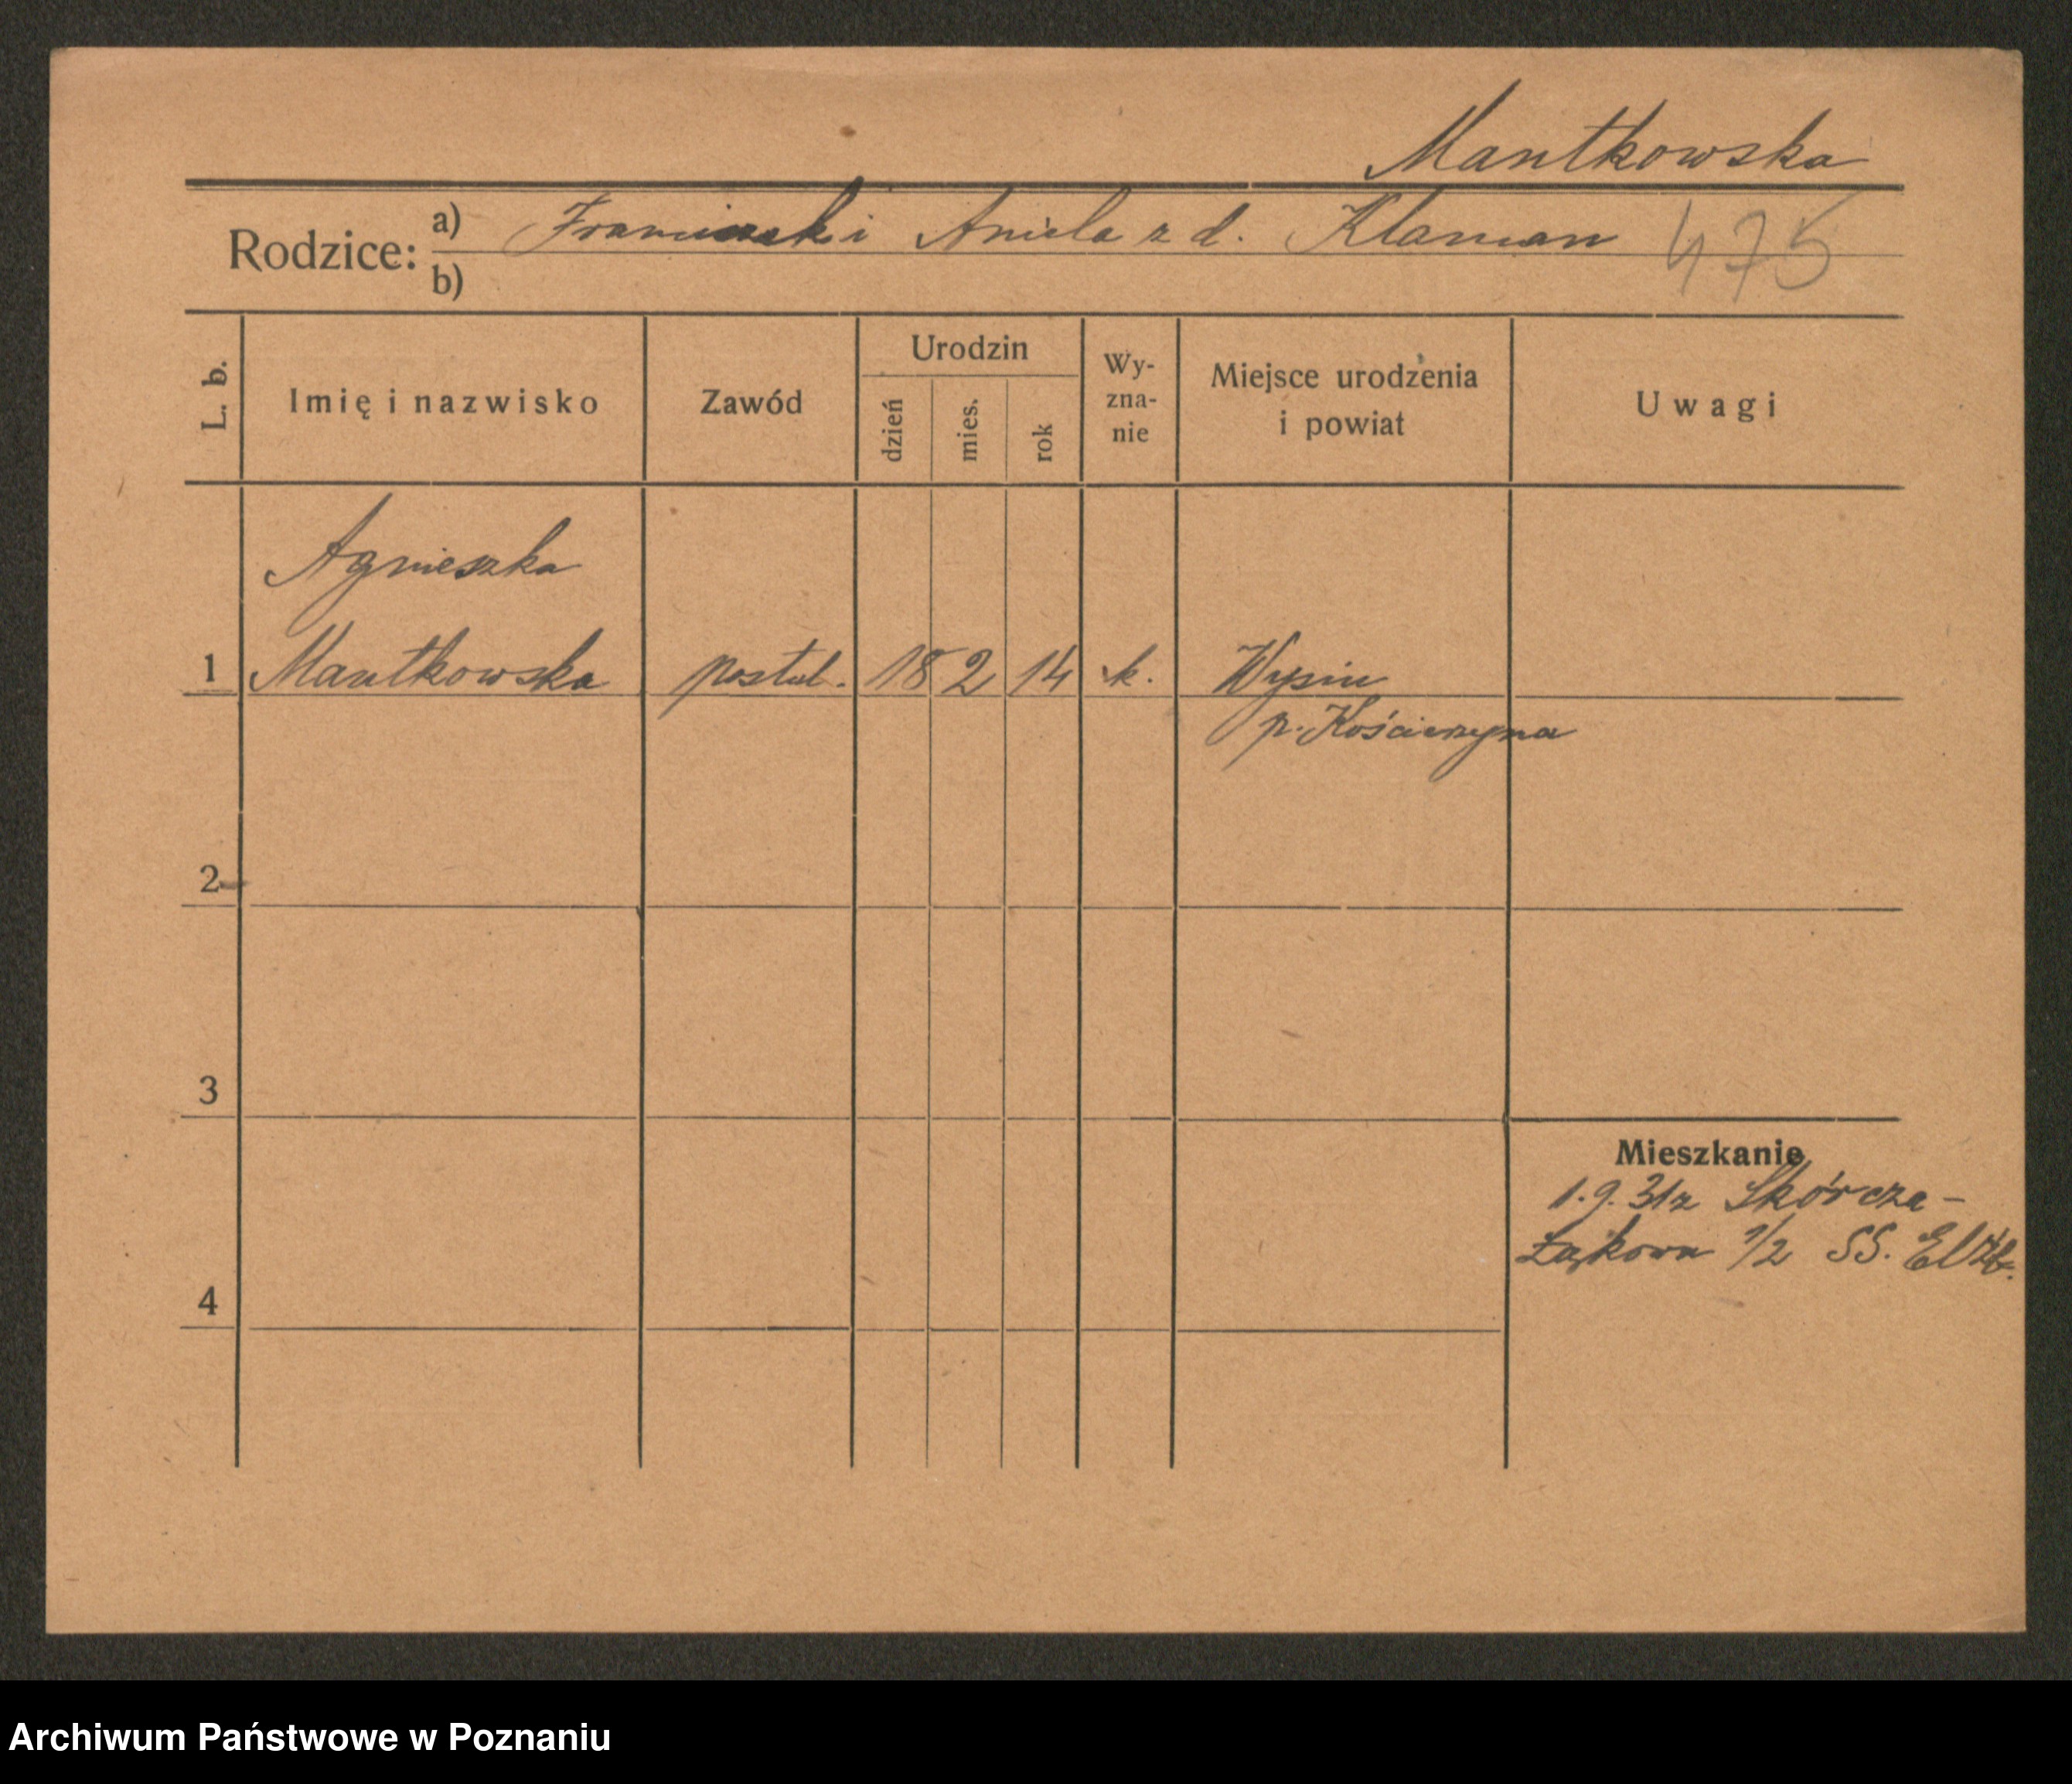 Mantkowska
Rodzice:
a) Franciszek i Aniela z d. Klaman 475
b)
L. b.
Imię i nazwisko
Zawód
Urodzin
dzień
mies.
rok
Wy-
zna-
nie
Miejsce urodzenia
i powiat
Uwagi
Agnieszka
1 Mantkowska postul. 18 2 14 k. Wysin
p. Kościerzyna
2
3
Mieszkanie
1.9.31 z Skórcza -
Łąkowa 1/2 SS. Elżb.
4
Archiwum Państwowe w Poznaniu